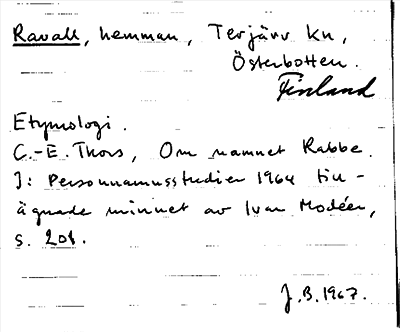 Ravall, hemman, Terjärv kn,
Österbotten.
Finland
Etymologi.
C.-E. Thors, Om namnet Rabbe.
I: Personnamnsstudier 1964 till-
ägnade minnet av Ivar Modéer,
s. 201.
J.B. 1967.